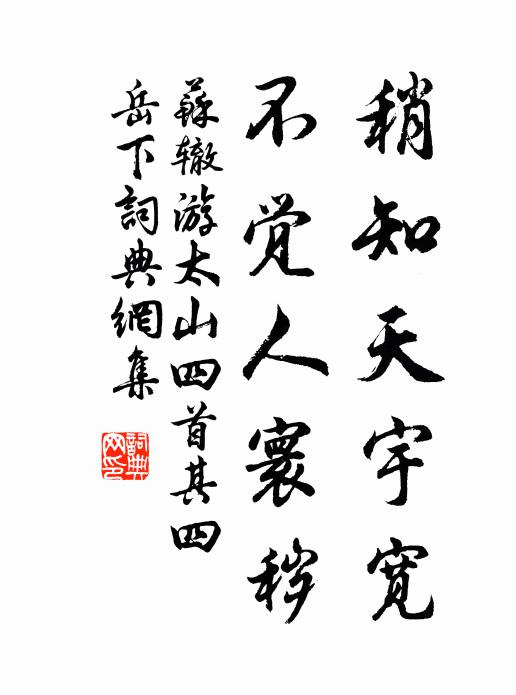 稍知天宇宽
不觉人寰秽
蘇辙游太山四首其四
岳下詞典網集
詞典网印